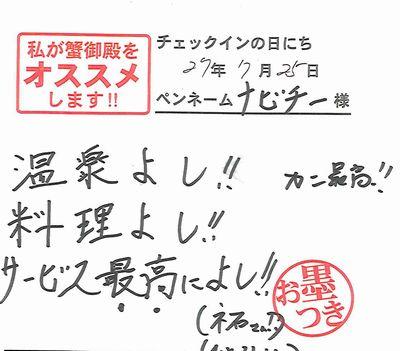 私が蟹御殿を
オススメ
します!!
チェックインの日にち
27年7月25日
ペンネーム ナビチー 様
温泉よし!!
カニ最高!!
料理よし!!
サービス最高によし!!
お墨つき